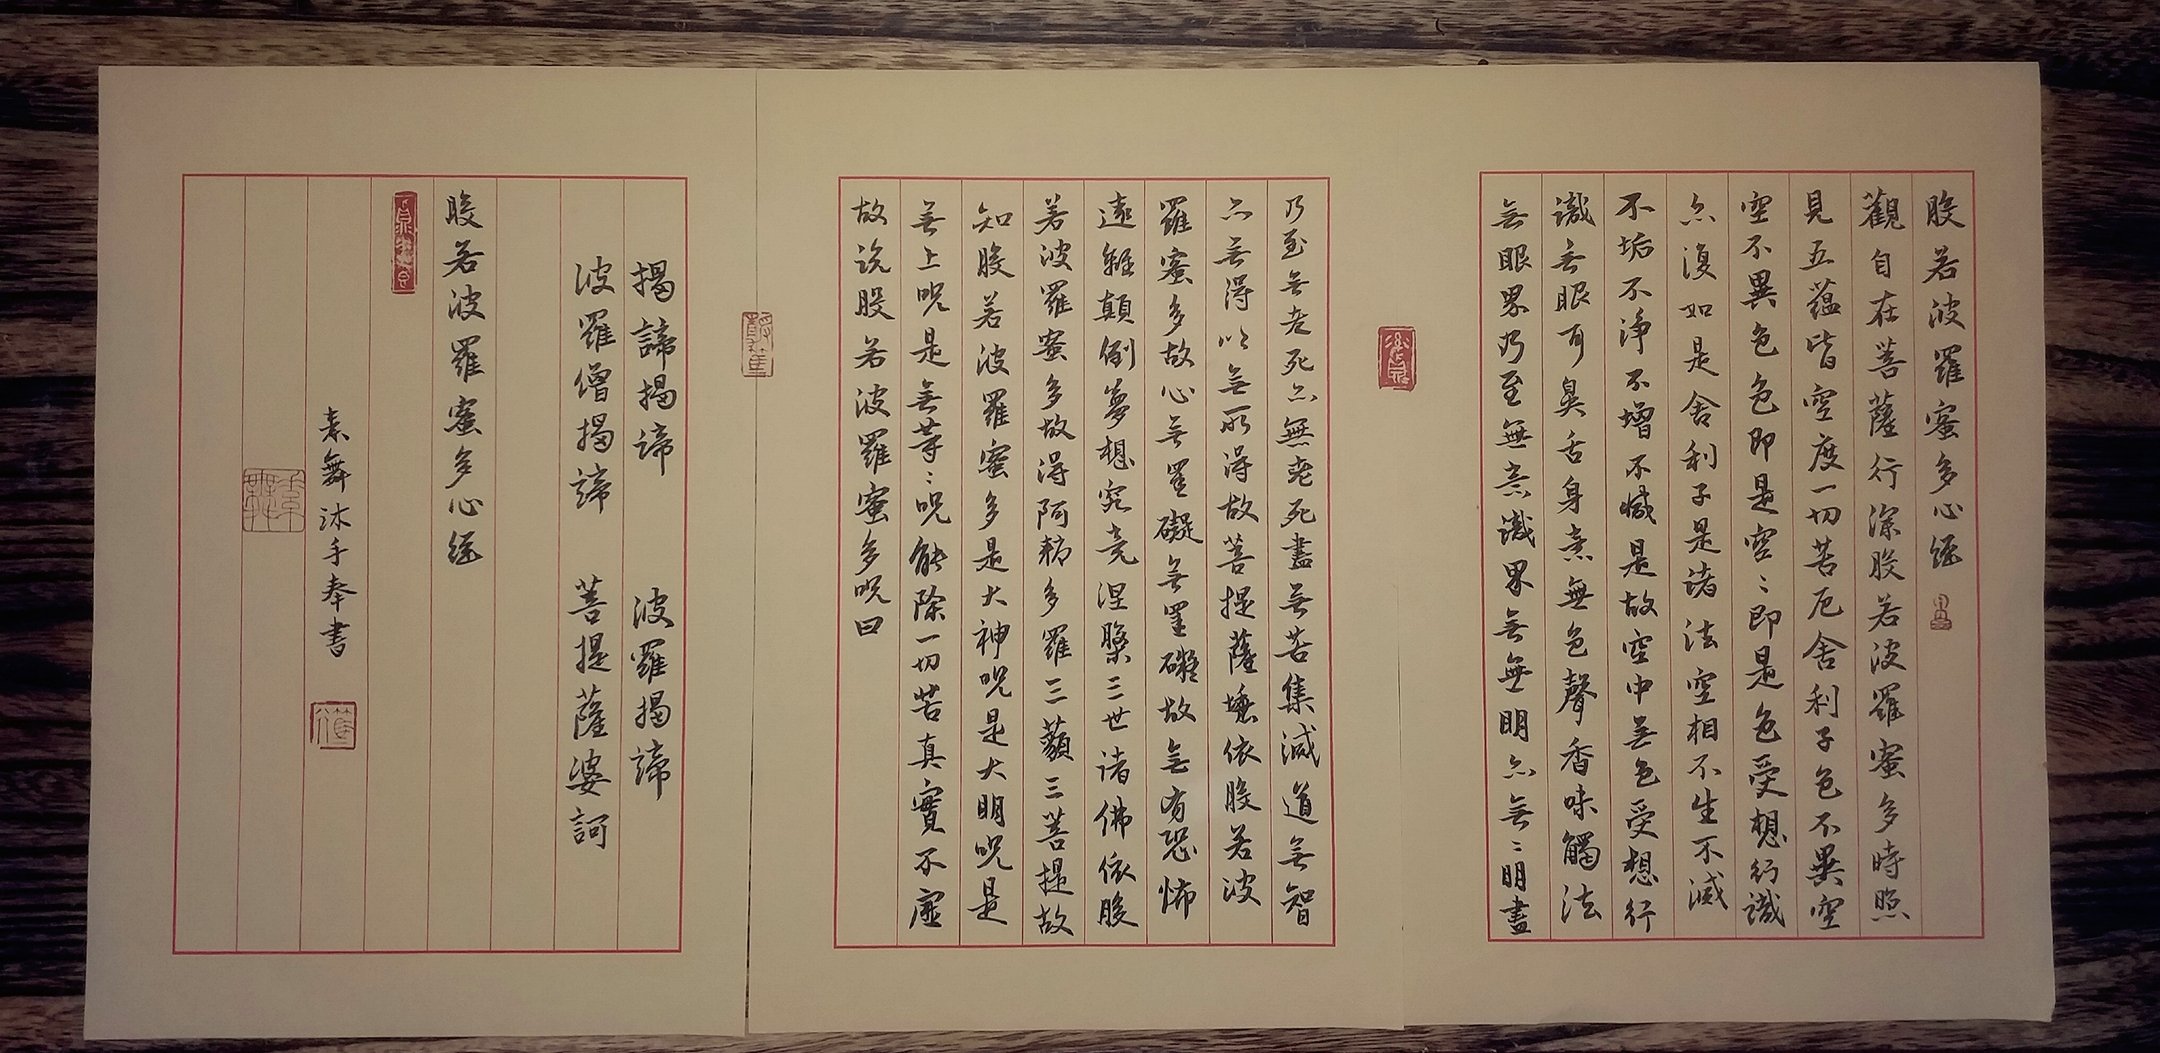 般若波羅蜜多心經
觀自在菩薩行深般若波羅蜜多時照
見五蘊皆空度一切苦厄舍利子色不異空
空不異色色即是空〻即是色受想行識
亦復如是舍利子是諸法空相不生不滅
不垢不淨不增不減是故空中無色受想行
識無眼耳鼻舌身意無色聲香味觸法
無眼界乃至無意識界無無明亦無〻明盡
乃至無老死亦無老死盡無苦集滅道無智
亦無得以無所得故菩提薩埵依般若波
羅蜜多故心無罣礙無罣礙故無有恐怖
遠離顛倒夢想究竟涅槃三世諸佛依般
若波羅蜜多故得阿耨多羅三藐三菩提故
知般若波羅蜜多是大神咒是大明咒是
無上咒是無等〻咒能除一切苦真實不虛
故說般若波羅蜜多咒曰
揭諦揭諦 波羅揭諦
波羅僧揭諦 菩提薩婆訶
般若波羅蜜多心經
素舞沐手奉書